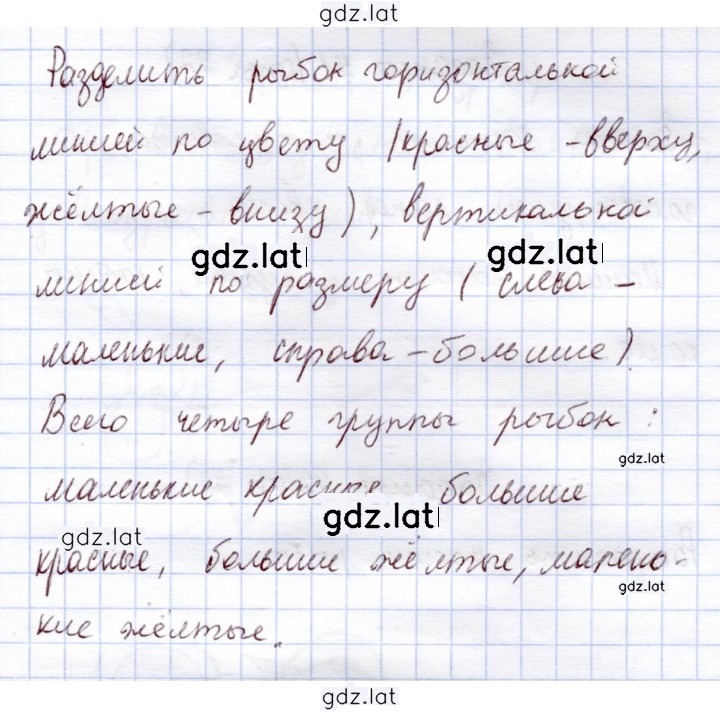 gdz.lat
Разделить рыбок горизонтальной
линией по цвету (красные - вверху,
жёлтые - внизу), вертикальной
gdz.lat gdz.lat
линией по размеру (слева -
маленькие, справа - большие).
Всего четыре группы рыбок:
gdz.lat
маленькие красные, большие
gdz.lat
gdz.lat
красные, большие жёлтые, малень-
gdz.lat
кие жёлтые.
gdz.lat